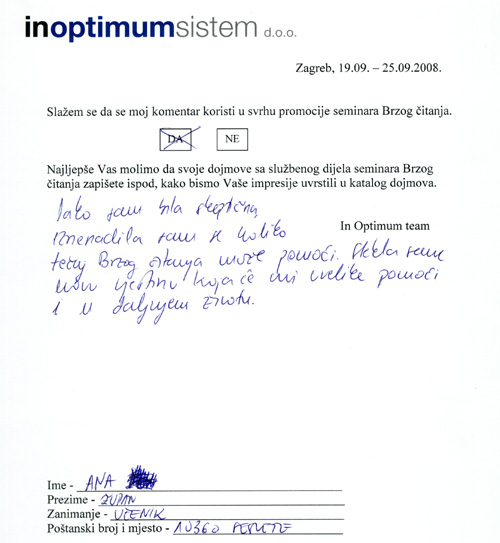 inoptimumsistem d.o.o.
Zagreb, 19.09. – 25.09.2008.
Slažem se da se moj komentar koristi u svrhu promocije seminara Brzog čitanja.
DA NE
Najljepše Vas molimo da svoje dojmove sa službenog dijela seminara Brzog
čitanja zapišete ispod, kako bismo Vaše impresije uvrstili u katalog dojmova.
Iako sam bila skeptična,
In Optimum team
iznenadila sam se koliko
tečaj Brzog čitanja može pomoći. Stekla sam
novu vještinu koja će mi uvelike pomoći
i u daljnjem životu.
Ime - ANA
Prezime - ZUPAN
Zanimanje - UČENIK
Poštanski broj i mjesto - 10360